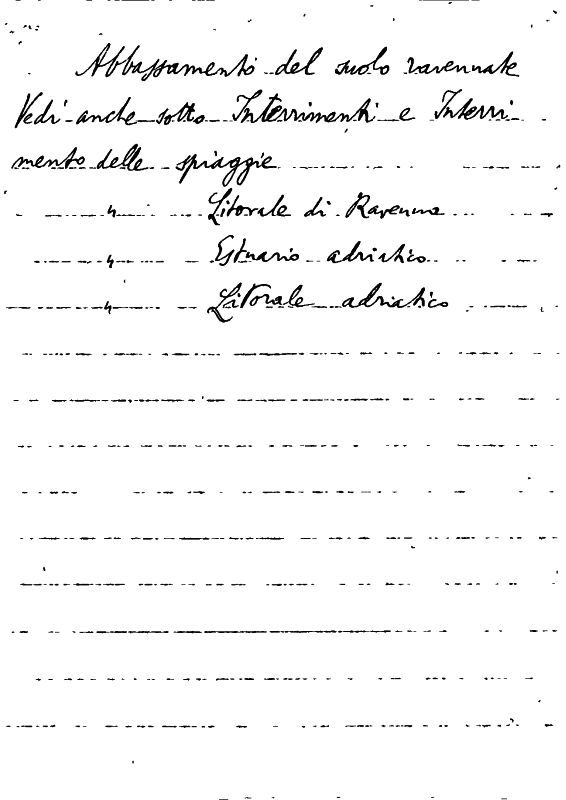 Abbassamento del suolo ravennate
Vedi anche sotto Interrimenti e Interri-
mento delle spiaggie
" Litorale di Ravenna
" Estuario adriatico
" Litorale adriatico